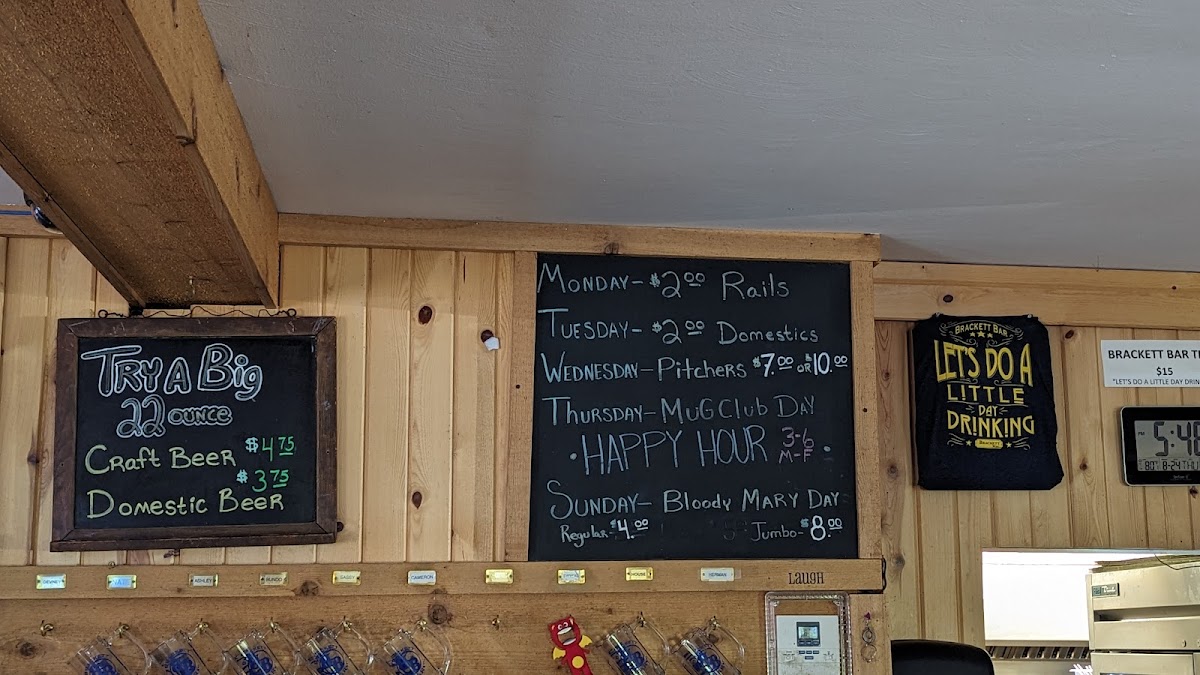 TRY A Big
22 OUNCE
CRAFT BEER $4.75
DOMESTIC BEER $3.75
MONDAY- $2.00 Rails
TUESDAY- $2.00 DOMESTICS
WEDNESDAY- PITCHERS $7.00 OR $10.00
THURSDAY- MUG CLUB DAY
•HAPPY HOUR 3-6 M-F •
SUNDAY- Bloody MARY DAY
Regular- $4.00 Jumbo- $8.00
BRACKETT BAR
LET'S DO A
LITTLE
DAY
DRINKING
BRACKETT BAR T
$15
"LET'S DO A LITTLE DAY DRIN
5:4
80 8-24 THU
ASHLEY
CAMERON
HOUSE
HERMAN
LAUGH